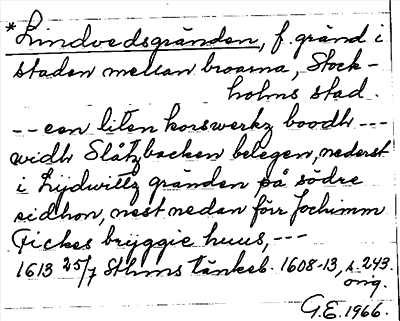 *Lindvedsgränden, f. gränd i
staden mellan broarna, Stock-
holms stad.
-- een liten korswerkz boodh ---
widh Slåtzbacken belegen, nederst
i Lijdwittz gränden på södre
sidhon, nest nedan förr Jochimm
Fickes bryggie huus, ---
1613 25/7 Sthms tänkeb. 1608-13, s. 243.
orig.
G.E. 1966.